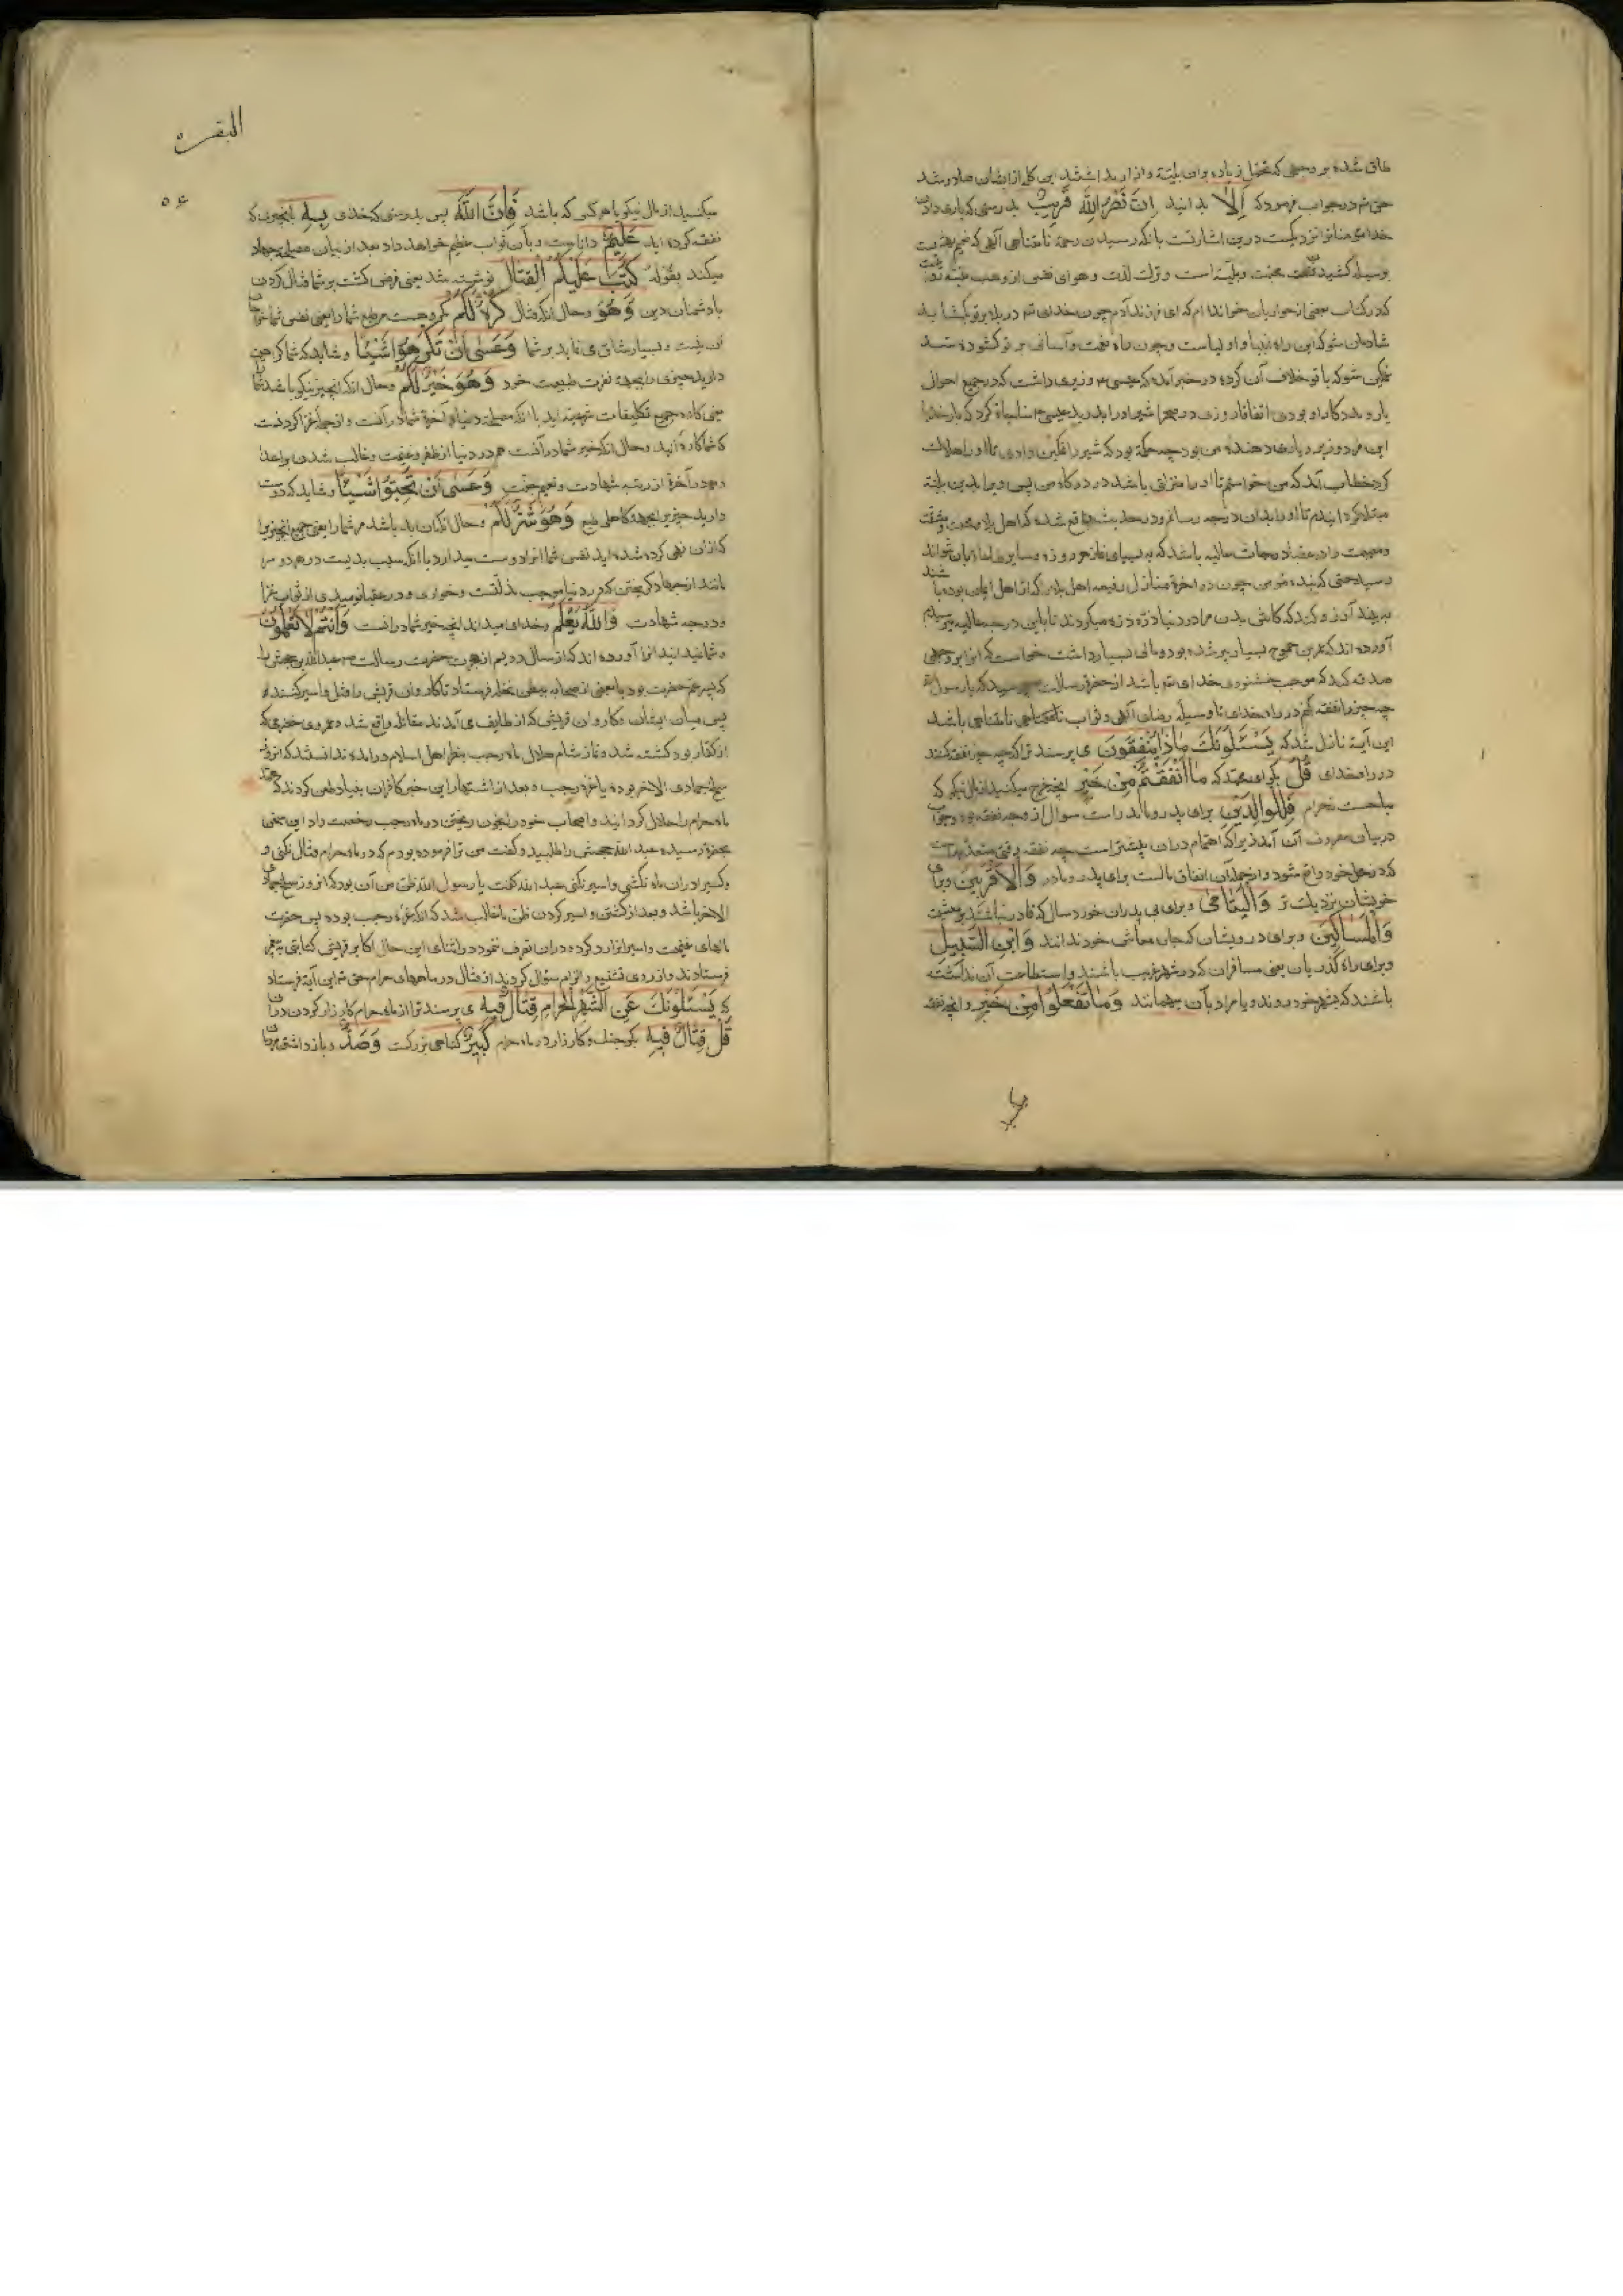 طاق شده بر وجهی که تحمل زیاده بران بلیته و انرا رید اشتند این کله از ایشان صادر شد
حق تم در جواب فرمود که اَلَا بدانید اِنَّ نَصْرَ اللّٰهِ قَرِیبٌ بدرستی که یاری دادن
خدای مر شمارا نزدیکست درین اشارتست بانکه رسیدن رحمة نامتناهی آلهی که نعیم
بوسیله کشیدن محنت و بلیته است و ترک لذت و هوای نفس از وهب
که در کتاب بعضی از حواریان خوانده ام که ای فرزند آدم چون خدای تم در بلا بر تو بکشاید
شادمان شو که این راه انبیا و اولیاست و چون راه نعمت و آسانی بر تو کشوده شد
غمکین شو که با تو خلاف آن کرده در خبر آمده که عیسی م وزیری داشت که در جمیع احوال
یار و مددکار او بودی اتفاقا روزی در صحرا شیر او را بدرید عیسی م مناجاة کرد که بار خدایا
این مرد وزیر و یاری دهنده من بود چه حکمة بود که شیر را فکین دادی تا او را هلاک
کرد خطاب آمد که من خواستم تا او را منزلتی باشد در درکاه من پس ویرا بدین بلیته
مبتلا کرد انیدم تا او را بدان درجه رسانم و در حدیث واقع شده که اهل بلا و محنت و مشقت
و مصیبت را در درجات عالیه باشد که به بسیاری نماز و روزه و سایر طاعات بان نتوانند
رسید حتی که بنده مؤمن چون در اخرة منازل رفیعه اهل بلا را که از اهل ایمان بوده باشند
به بیند آرزو کند که کاش بدن مرا در دنیا ذره ذره میکردند تا باین درجه عالیه میرسیدم
آورده اند که عمرو بن جموح بسیار پیر شده بود و مالی بسیار داشت خواست که انرا بر وجهی
صدقه کند که موجب خشنودی خدای تم باشد از حضرة رسالت پرسید که یا رسول الله
چه چیز را نفقه کنم در راه خدای تا وسیله رضای آلهی و ثواب نامتناهی باشد
این آیة نازل شد که یَسْـَٔلُونَکَ مَاذَا یُنْفِقُونَ می پرسند ترا که چه چیز نفقه کنند
در راه خدای قُلْ بکو ای محمد که مَا اَنْفَقْتُمْ مِنْ خَیْرٍ انچه خرج میکنید از مال نیکو که
مباحست نه حرام فَلِلْوَالِدَیْنِ برای پدر و مادر است سوال از وجه نفقه بود و جواب
در بیان مصرف آن آمد زیرا که اهتمام دران بیشتر است چه نفقه وقتی معتد به است
که در محل خود واقع شود و از جمله آن انفاق مالست برای پدر و مادر وَالْاَقْرَبِینَ و برای
خویشان نزدیک تر وَالْیَتَامٰی و برای بی پدران خورد سال که قادر نباشند بر معیشت
وَالْمَسَاکِینِ و برای درویشان که جان معاش خود ندانند وَابْنِ السَّبِیلِ
و برای راه کذریان یعنی مسافران که در شهر غریب باشند و استطاعت آن نداشته
باشند که بشهر خود روند و یا مراد بآن مهمانند وَمَا تَفْعَلُوا مِنْ خَیْرٍ و انچه نفقه
البقره
۵۶
میکنید از مال نیکو با هر کس که باشد فَاِنَّ اللّٰهَ پس بدرستی که خدای بِهٖ بانچیزی که
نفقه کرده اید عَلِیمٌ داناست و بآن ثواب عظیم خواهد داد بعد از بیان مصلحة جهاد
میکند بقوله کُتِبَ عَلَیْکُمُ الْقِتَالُ نوشته شد یعنی فرض کشت بر شما قتال کردن
با دشمنان دین وَهُوَ و حال انکه قتال کُرْهٌ لَکُمْ مکروهست مر طبع شما را یعنی نفس شما
آن نیست و بسیار شاق می نماید بر شما وَعَسٰی اَنْ تَکْرَهُوا شَیْئًا و شاید که شما کراهت
دارید چیزی را بجهة نفرت طبیعت خود وَهُوَ خَیْرٌ لَکُمْ و حال انکه انچیز نیکو باشد شما را
یعنی کاره جمیع تکلیفات شرعیه اید با انکه مصلحة دنیا و آخرة شما در آنست و از جمله غزا کردنست
که شما کاره آنید و حال انکه خیر شما در آنست هم در دنیا از ظفر و غنیمت و غالب شدن بر اعدا
و هم در آخرة از رتبه شهادت و نعیم جنت وَعَسٰی اَنْ تُحِبُّوا شَیْئًا و شاید که دوست
دارید چیزی را بجهة کاهلی طبع وَهُوَ شَرٌّ لَکُمْ و حال انکه آن بد باشد مر شما را یعنی جمیع انچیز را
که ازان نهی کرده شده اید نفس شما انرا دوست میدارد با انکه سبب بدیست در هر دو سرا
مانند از جهاد کریختن که در دنیا موجب مذلتست و خواری و در عقبا نومیدی از ثواب غزا
و درجه شهادت وَاللّٰهُ یَعْلَمُ و خدای میداند انچه خیر شما درانست وَاَنْتُمْ لَا تَعْلَمُونَ
و شما نمیدانید انرا آورده اند که از سال دویم از هجرت حضرت رسالت م عبدالله بن جحش را
که پسر عم حضرت بود با بعضی از صحابه ببطن نخله فرستاد تا کاروان قریش را قتل و اسیر کنند
پس میان ایشان و کاروان قریش که از طایف می آمدند مقاتله واقع شد و عمرو حضرمی که
از کفار بود کشته شد و نماز شام هلال ماه رجب بنظر اهل اسلام درامده ندانستند که انروز
سلخ جمادی الآخر بوده یا غرة رجب و بعد از اشتهار این خبر کافران بنیاد طعن کردند که محمد
ماه حرام را حلال کردانید و اصحاب خود را بخون ریختن در ماه رجب رخصت داد این سخن
بحضرة رسیده عبد الله جحش را طلبید و کفت من ترا فرموده بودم که در ماه حرام قتال نکنی و
و کسی را دران ماه نکشی و اسیر نکنی عبد الله کفت یا رسول الله ظن من آن بود که انروز سلخ جمادی
الآخر باشد و بعد از کشتن و اسیر کردن ظن ما غالب شد که انکه غرة رجب بوده پس حضرت
مالهای غنیمت و اسیر انرا رد کرده دران تصرف ننمود در اثنای این حال اکابر قریش کتابتی به پیغمبر
فرستادند و از روی تشنیع و الزام سؤال کردند از قتال در ماههای حرام حق تم این آیة فرستاد
که یَسْـَٔلُونَکَ عَنِ الشَّهْرِ الْحَرَامِ قِتَالٍ فِیهِ می پرسند ترا از ماه حرام کارزار کردن دران
قُلْ قِتَالٌ فِیهِ بکو جنک و کارزار در ماه حرام کَبِیرٌ کناهی بزرکست وَصَدٌّ و بازداشتن